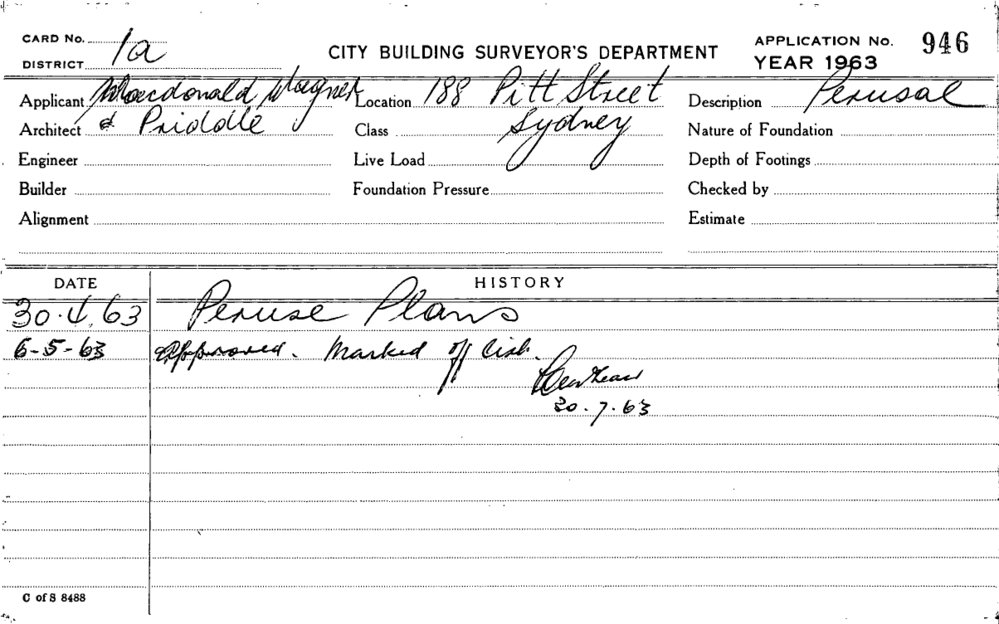 CARD No. 1a
DISTRICT
CITY BUILDING SURVEYOR'S DEPARTMENT
APPLICATION No. 946
YEAR 1963
Applicant Macdonald Wagner
Location 188 Pitt Street
Description Perusal
Architect & Priddle
Class Sydney
Nature of Foundation
Engineer
Live Load
Depth of Footings
Builder
Foundation Pressure
Checked by
Alignment
Estimate
DATE
HISTORY
30.4.63 Peruse Plans
6-5-63 Approved. Marked off list.
30.7.63
C of S 8488